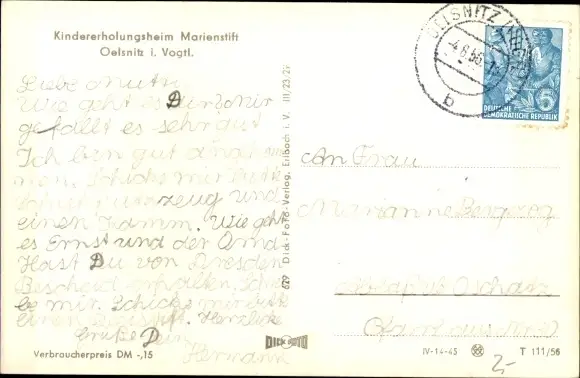 Kindererholungsheim Marienstift
Oelsnitz i. Vogtl.
Liebe Mutti
Wie geht es Dir? Mir
gefällt es sehr gut
Ich bin gut angekom
men. Schicke mir bitte
und
einen Kamm. Wie geht
es Ernst und der Oma
Hast Du von Dresden
Bescheid erhalten. Schrei
be mir. Schicke mir bitte
einen Herzliche
Grüße Dein
Hermann
Verbraucherpreis DM -,15
629 Dick-Foto-Verlag, Erlbach i. V. III/23/29
DICK FOTO
OELSNITZ (VOGTL)
-4.6.56.
b
DEUTSCHE
DEMOKRATISCHE REPUBLIK
6
An Frau
Marianne
Oschatz
IV-14-45
T 111/56
2,-